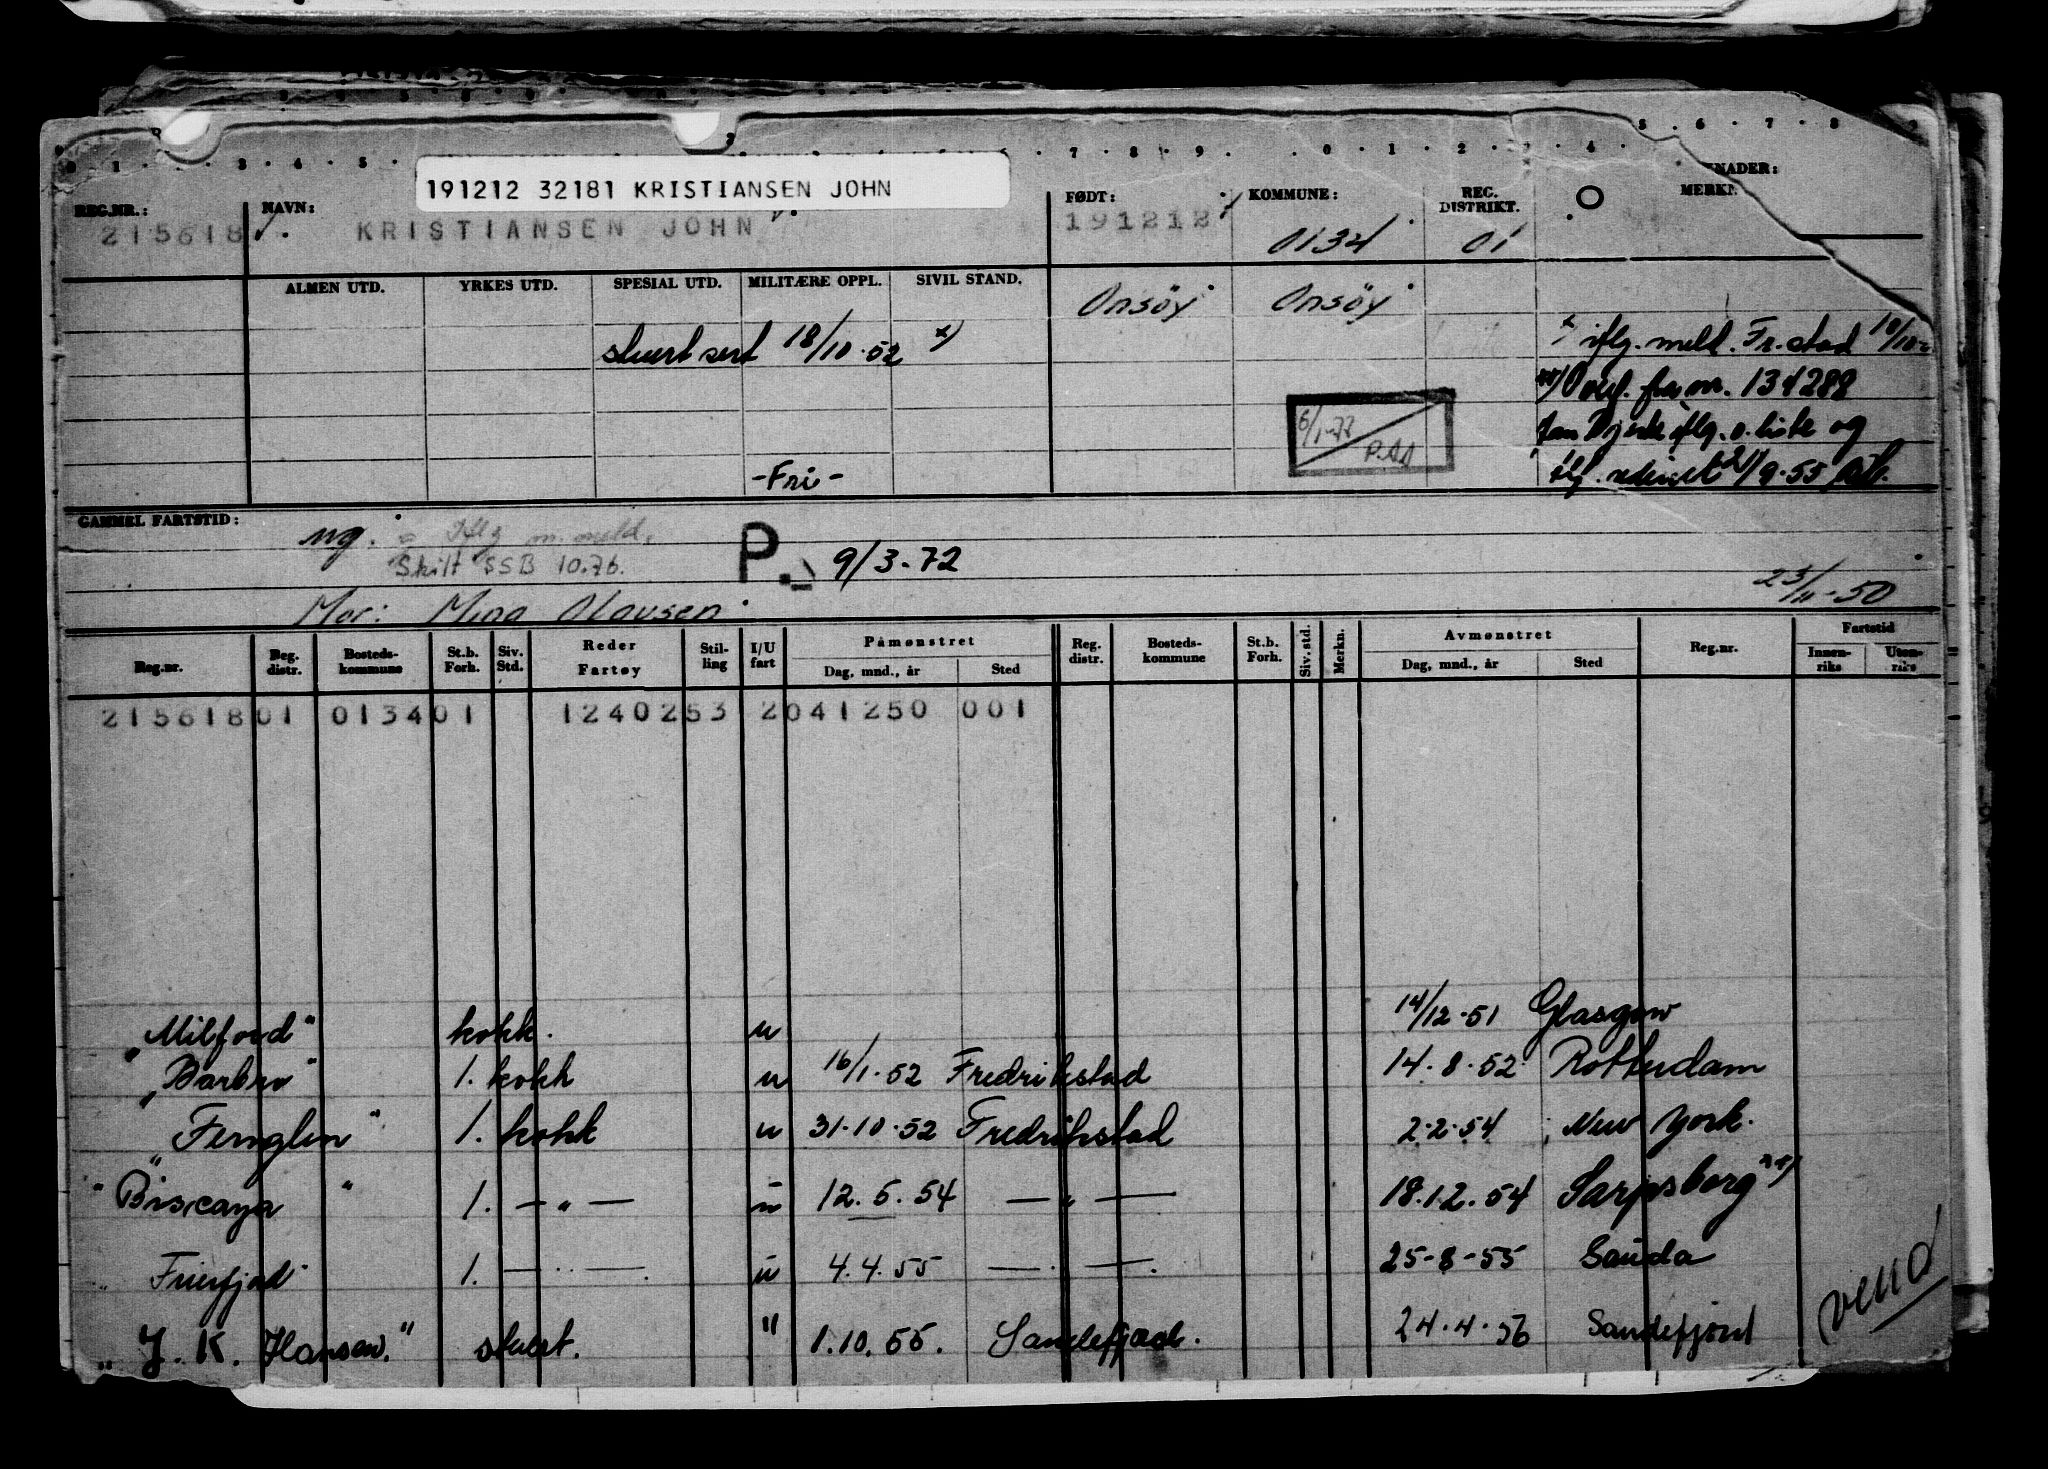 191212 32181 KRISTIANSEN JOHN
REG.NR.: NAVN: FØDT: KOMMUNE: REG. DISTRIKT.
215618 KRISTIANSEN JOHN 191212 0134 01
ALMEN UTD. YRKES UTD. SPESIAL UTD. MILITÆRE OPPL. SIVIL STAND. Onsöy Onsöy
stuert sert 18/10.52 x) x iflg. meld. Fr.stad 18/10
xx) Overf. fra nr. 134288
6/1-77 P.AA iflg. o. liste og
-Fri- 21/9.55
GAMMEL FARTSTID: ng. Iflg m. meld.
Skilt SSB 10.76. P. 9/3-72
Mor: Mina Olausen 23/11-50
Reg.nr. Reg. distr. Bosteds-kommune St.b. Forh. Siv. Std. Reder Fartøy Stil-ling I/U fart Påmønstret Dag, mnd., år Sted Reg. distr. Bosteds-kommune St.b. Forh. Siv. std. Merkn. Avmønstret Dag, mnd., år Sted Reg.nr. Fartstid Innen-riks Uten-riks
215618 01 0134 01 1240253 2 041250 001
"Milford" kokk. u 14/12.51 Glasgow
"Barbro" 1. kokk u 16/1.52 Fredrikstad 14.8.52 Rotterdam
"Fernglen" 1. kokk u 31.10.52 Fredrikstad 2.2.54 New York.
"Biscaya" 1. — " — u 12.5.54 — " — 18.12.54 Sarpsborg xx)
"Frierfjord" 1. — " — u 4.4.55 — " — 25-8-55 Sauda
"J. K. Hansen." stuert. " 1.10.55. Sandefjord. 24.4.56 Sandefjord
vend